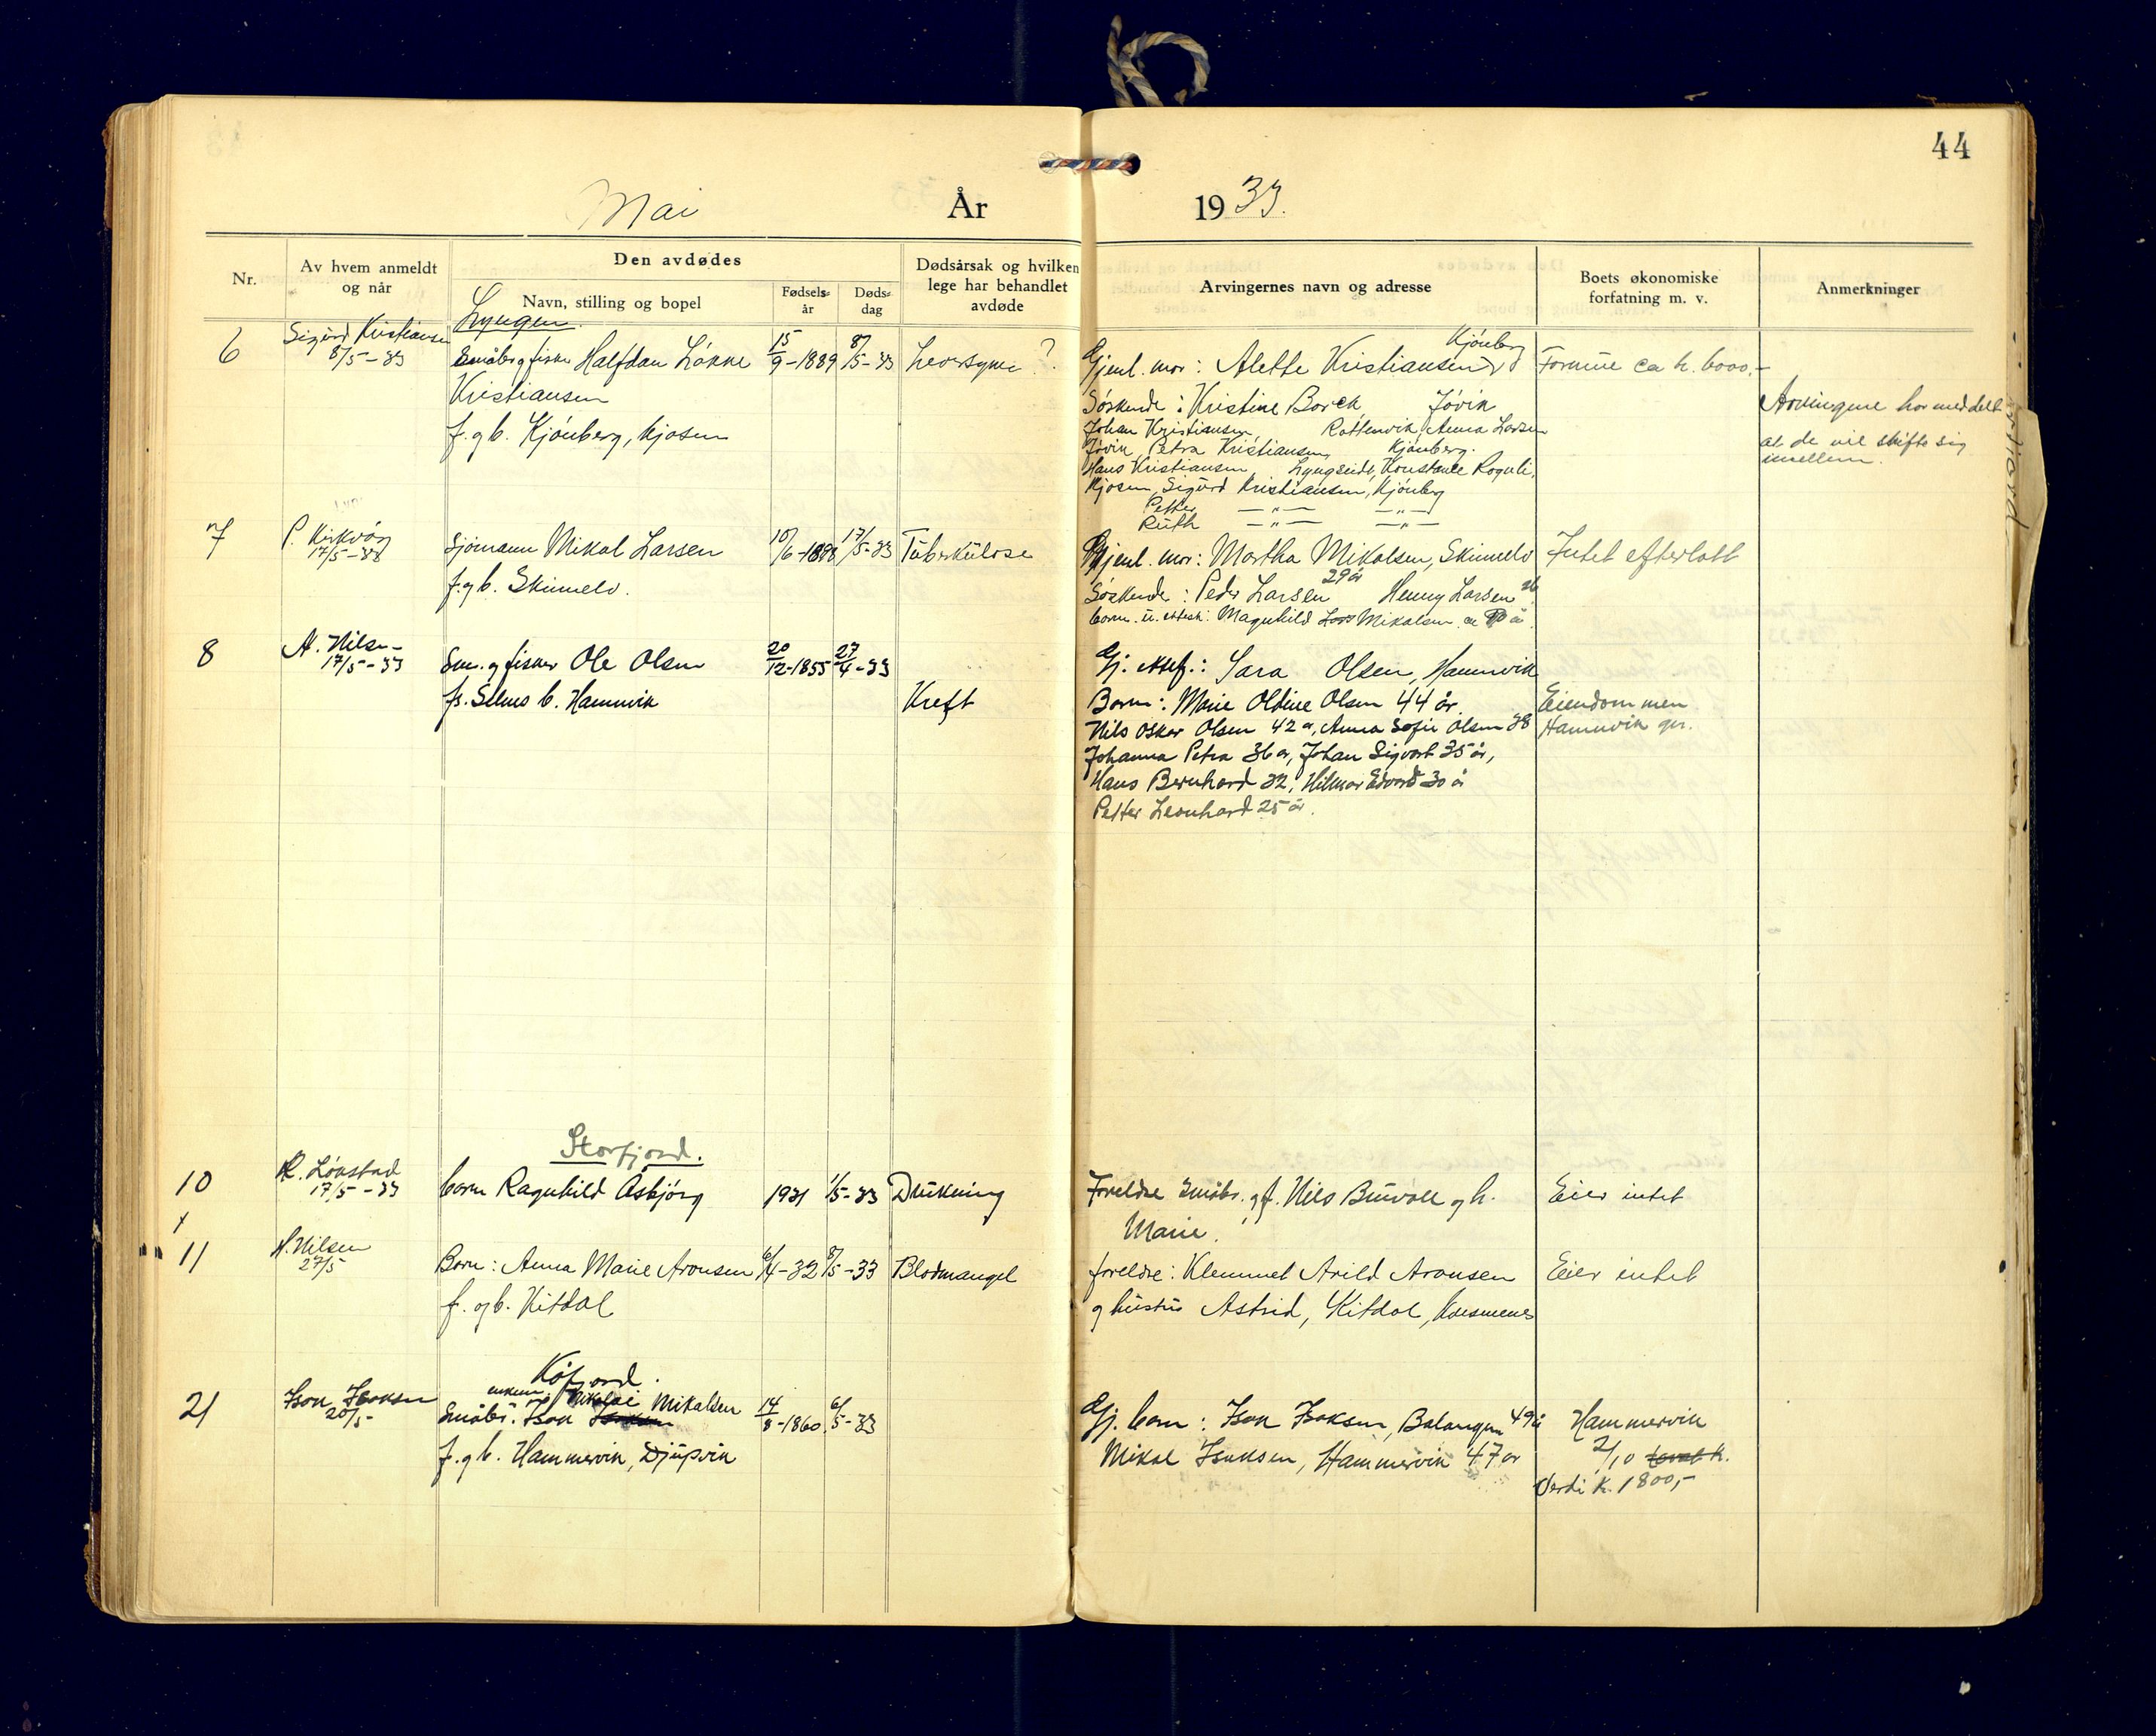 44
Mai År 1933.
Nr.
Av hvem anmeldt
og når
Den avdødes
Navn, stilling og bopel
Fødsels-
år
Døds-
dag
Dødsårsak og hvilken
lege har behandlet
avdøde
Arvingernes navn og adresse
Boets økonomiske
forfatning m. v.
Anmerkninger
Lyngen.
6
Sigurd Kristiansen
8/5-33
Småbr. og fisker Halfdan Løkke
Kristiansen
f. og b. Kjønberg, Kjosen
15/9-1889
8/5-33
?
Kjønberg
Gjenl. mor: Alette Kristiansen
Søskende: Kristine Borch, Jøvik
Johan Kristiansen, Rottenvik, Anna Larsen
Jøvik, Petra Kristiansen, Kjønberg.
Hans Kristiansen, Lyngseidet, Konstanse
Kjosen, Sigurd Kristiansen, Kjønberg
Petter —„— —„—
Ruth —„— —„—
Formue ca kr. 6000,-
Arvingene har meddelt
at de vil skifte sig
imellem.
7
P. Kirkvåg
17/5-33
Sjømann Mikal Larsen
f. og b. Skinnelv.
10/6-1898
17/5-33
Tuberkulose
Gjenl. mor: Martha Mikalsen, Skinnelv
29 år
Søskende: Peder Larsen Henny Larsen
Magnhild Mikalsen
Intet efterlatt
8
A. Nilsen
17/5-33
Sm. og fisker Ole Olsen
b. Hamnvik
20/12-1855
27/4-33
Kreft
Gj. ektef.: Sara Olsen, Hamnvik
Barn: Marie Oldine Olsen 44 år.
Nils Oskar Olsen 42 år, Anna Sofie Olsen 38
Johanna Petra 36 år, Johan Sigvart 35 år,
Hans Bernhard 32, Hilmar Edvard 30 år
Petter Leonhard 25 år.
Eiendommen
Hamnvik gnr.
Storfjord.
10
Lønstad
17/5-33
barn Ragnhild Asbjørg
1931
1/5-33
Drukning
Foreldre småbr. og f. Nils Burvall og h.
Marie.
Eier intet
11
H. Nilsen
27/5
Barn: Anna Marie Aronsen
f. og b. Kitdal
6/4-32
8/5-33
Blodmangel
foreldre: Klemmet Arild Aronsen
og hustru Astrid, Kitdal,
Eier intet
Kåfjord.
21
Isak Isaksen
20/5-
enkem. Nikolai Mikalsen
Småbr. Isak Isaksen
f. og b. Hammervik, Djupvik
14/8-1860
6/5-33
Gj. barn: Isak Isaksen, Balangen 49 år
Mikal Isaksen, Hammervik 47 år
Hammervik
2/10
Verdi kr. 1800,-